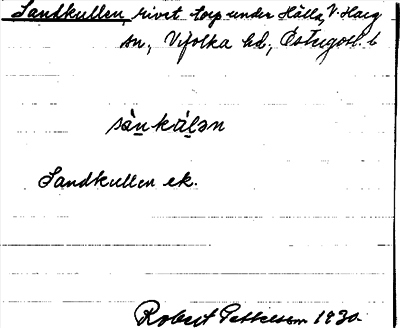 Sandkullen, rivet torp under Hälla, V. Harg
sn, Vifolka hd, Östergötl. l
sànkúlən
Sandkullen ek.
Robert Pettersson 1930.